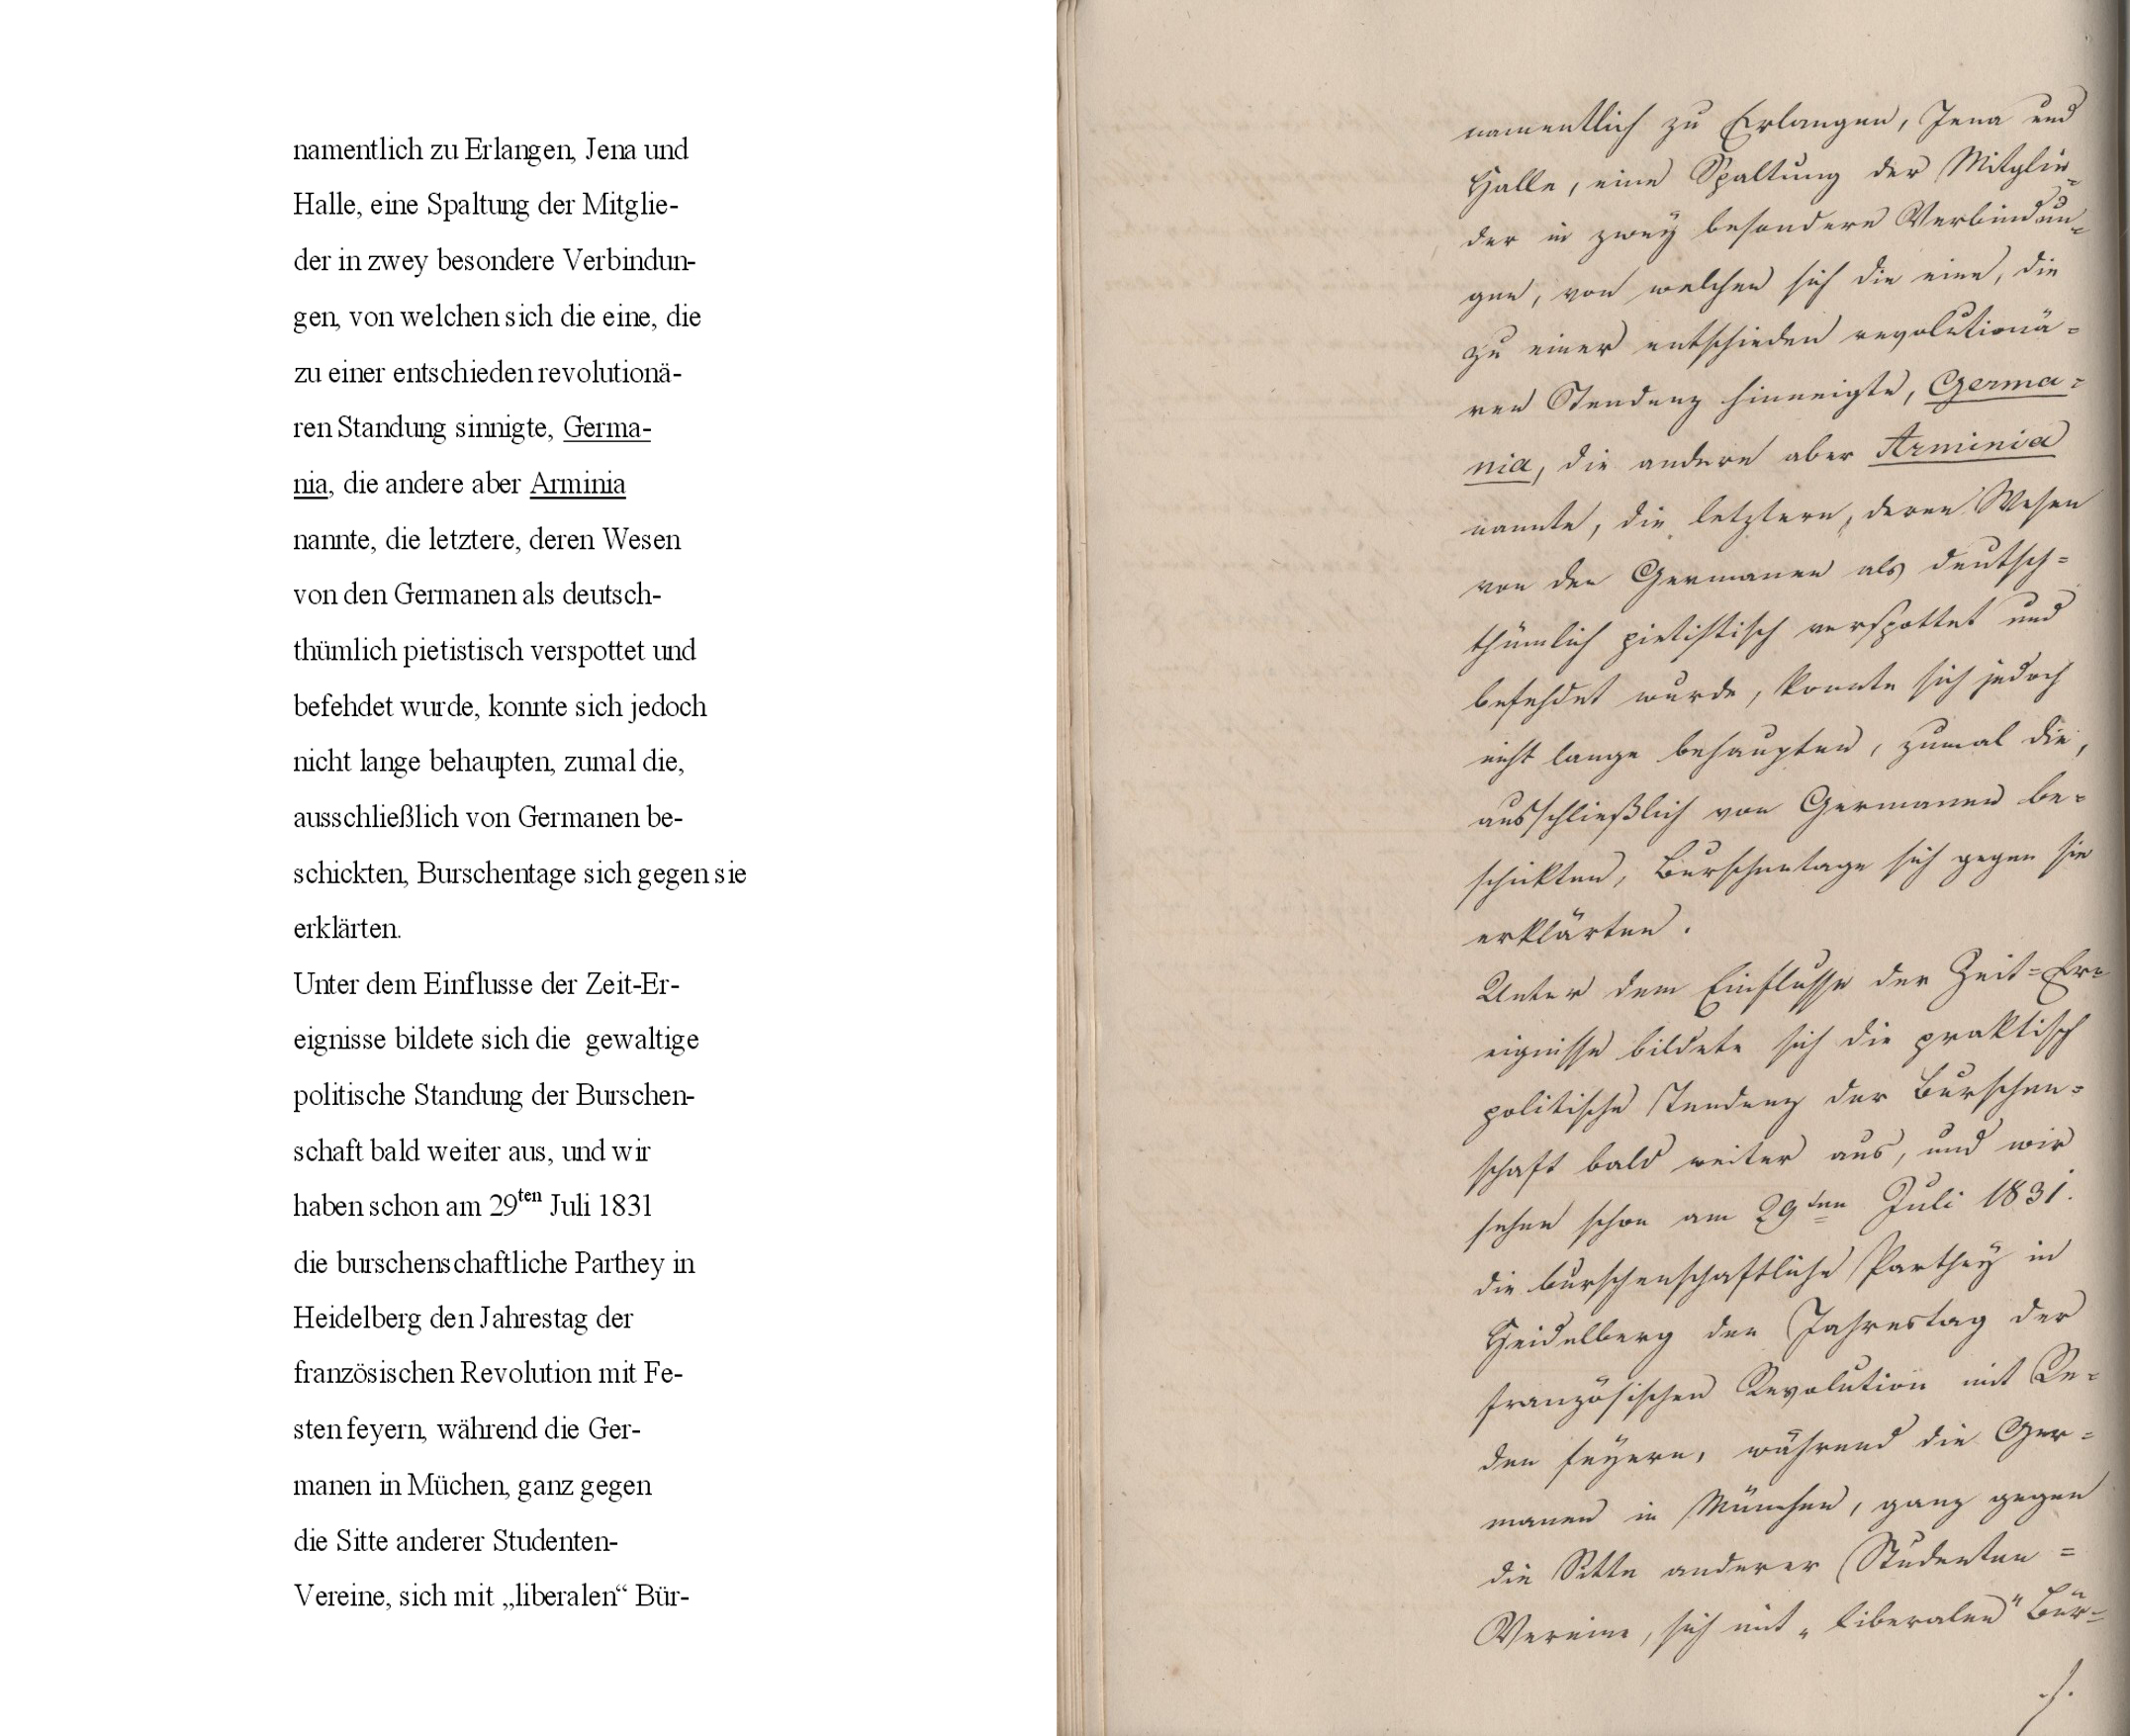 namentlich zu Erlangen, Jena und
Halle, eine Spaltung der Mitglie-
der in zwey besondere Verbindun-
gen, von welchen sich die eine, die
zu einer entschieden revolutionä-
ren Standung sinnigte, Germa-
nia, die andere aber Arminia
nannte, die letztere, deren Wesen
von den Germanen als deutsch-
thümlich pietistisch verspottet und
befehdet wurde, konnte sich jedoch
nicht lange behaupten, zumal die,
ausschließlich von Germanen be-
schickten, Burschentage sich gegen sie
erklärten.
Unter dem Einflusse der Zeit-Er-
eignisse bildete sich die gewaltige
politische Standung der Burschen-
schaft bald weiter aus, und wir
haben schon am 29ten Juli 1831
die burschenschaftliche Parthey in
Heidelberg den Jahrestag der
französischen Revolution mit Fe-
sten feyern, während die Ger-
manen in Müchen, ganz gegen
die Sitte anderer Studenten-
Vereine, sich mit „liberalen“ Bür-
namentlich zu Erlangen, Jena und
Halle, eine Spaltung der Mitglie-
der in zwey besondere Verbindun-
gen, von welchen sich die eine, die
zu einer entschieden revolutionä-
ren Tendenz hinneigte, Germa-
nia, die andere aber Arminia
nannte, die letztere, deren Wesen
von den Germanen als deutsch-
thümlich pietistisch verspottet und
befehdet wurde, konnte sich jedoch
nicht lange behaupten, zumal die,
ausschließlich von Germanen be-
schickten, Burschentage sich gegen sie
erklärten.
Unter dem Einflusse der Zeit-Er-
eignisse bildete sich die praktisch
politische Tendenz der Burschen-
schaft bald weiter aus, und wir
sehen schon am 29ten Juli 1831.
die burschenschaftliche Parthey in
Heidelberg den Jahrestag der
französischen Revolution mit Re-
den feyern, während die Ger-
manen in München, ganz gegen
die Sitte anderer Studenten-
Vereine, sich mit „liberalen“ Bür-